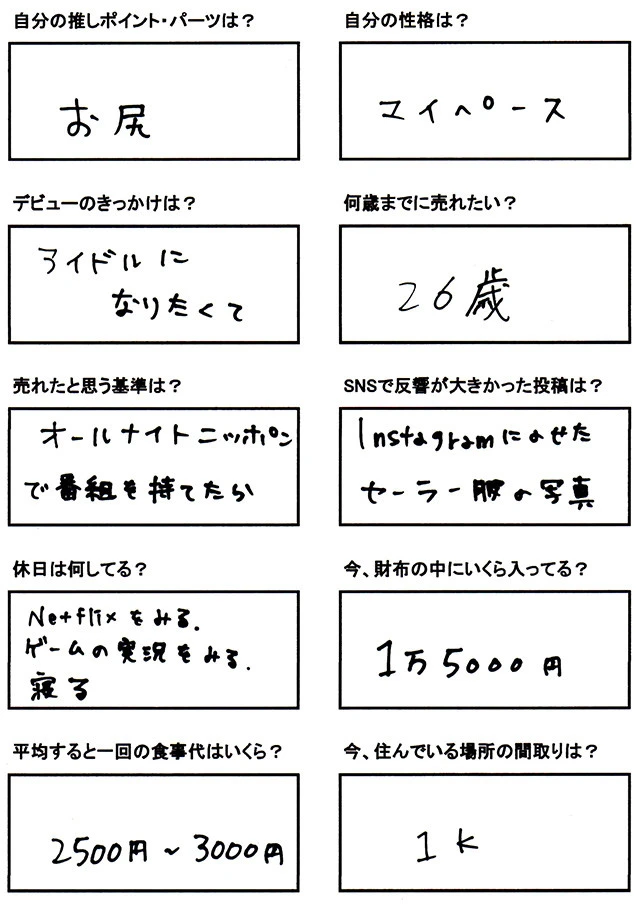 自分の推しポイント・パーツは？
お尻
自分の性格は？
マイペース
デビューのきっかけは？
アイドルに
なりたくて
何歳までに売れたい？
26歳
売れたと思う基準は？
オールナイトニッポン
で番組を持てたら
SNSで反響が大きかった投稿は？
Instagramにのせた
セーラー服の写真
休日は何してる？
Netflixをみる.
ゲームの実況をみる.
寝る
今、財布の中にいくら入ってる？
1万5000円
平均すると一回の食事代はいくら？
2500円～3000円
今、住んでいる場所の間取りは？
1K